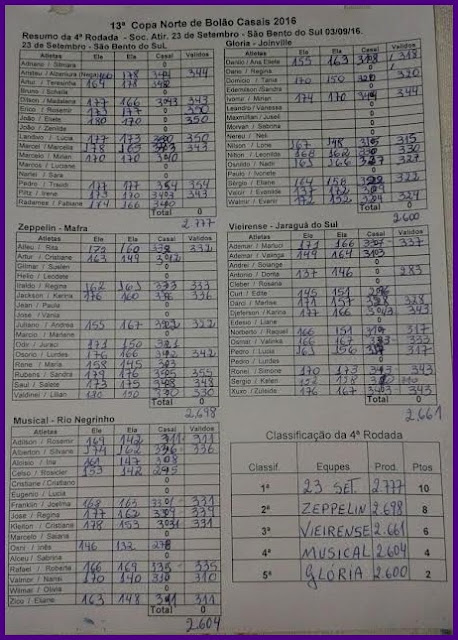 13ª Copa Norte de Bolão Casais 2016
Resumo da 4ª Rodada - Soc. Atir. 23 de Setembro - São Bento do Sul 03/09/16.
23 de Setembro - São Bento do Sul
Atletas Ela Ele Casal Validos
Adriano / Silmara 0
Artur / Teresinha 164 178
Bruno / Scheila 0
Dilson / Madalena 177 166 343 343
João / Eliete 180 170 350
João / Zenilda 0
Landivo / Lucia 177 173 350
Marcel / Marcelia 178 165 343 343
Marcelo / Mirian 170 170 340
Marcos / Luciane 0
Pedro / Traudi 177 177 354 354
Pitz / Irene 173 170 343 343
Radames / Fabiane 340
Total 0
2.777
Gloria - Joinville
Atletas Ela Ele Casal Validos
Danilo / Ana Eliete 155 163 318 318
Dario / Regina 0
Domicio / Tania 170 150 320 320
Edemilson / Sandra 0
Ivomar / Mirian 174 170 344 344
Leandro / Vanessa 0
Maxmillian / Juseli 0
Morvan / Sabrina 0
Nereu / Neli 0
Nilson / Lone 167 148 315 315
Nilton / Leonilda 330
Osnildo / Nadia 327
Paulo / Ivonete 0
Sérgio / Eliane 164 158 322 322
Walmir / Evanir 172 152 324 324
Total 0
2.600
Zeppelin - Mafra
Atletas Ela Ele Casal Validos
Alfeu / Rita 172 160 332 332
Artur / Cristiane 163 149 312
Gilmar / Suelen 0
Helio / Leodete 0
Ivaldo / Regina 333 333
Jackson / Karina 176 160 336 336
Jean / Paula 0
Jose / Vania 0
Juliano / Andrea 155 167 322 322
Marcio / Marlene 0
Odir / Juraci 171 150 321
Osorio / Lurdes 176 166 342 342
Rene / Maria 158 145
Rubens / Sandra 179 176 355 355
Saul / Salete 173 175 348 348
Valdinei / Lilian 180 150 330 330
Total 0
2.698
Vieirense - Jaraguá do Sul
Atletas Ela Ele Casal Validos
Ademar / Marluci 171 166 337 337
Ademar / Valsinga 149 164 313
Andrei / Solange 0
Antonio / Dorita 137 146 283
Cleber / Rosana 0
Curt / Edite 145 151 296
Dario / Marlise 171 157 328 328
Djeferson / Karina 177 166 343 343
Edesio / Liane 0
Norberto / Raquel 166 151 317 317
Osmar / Valinka 166 167 333 333
Pedro / Lucia 317
Pedro / Lurdes 0
Ronei / Simone 170 173 343 343
Sergio / Kelen 152 158 310
Xuxo / Zuleide 176 167 343 343
Total 0
2.661
Musical - Rio Negrinho
Atletas Ela Ele Casal Validos
Adilson / Rosemir 169 142 311 311
Alberton / Silvane 174 162 336 336
Aloisio / Iria 161 147 308
Celso / Rosicler 153 142 295
Cristiane / Cristiano 0
Eugenio / Lucia 0
Franklin / Joelma 168 163 331 331
Jose / Regina 177 162 339 339
Kleiton / Cristiane 178 153 331 331
Marcelo / Saiara 0
Osni / Inês 146 132 278
Alceu / Sabrina 0
Rafael / Roberta 166 169 335 335
Valmor / Olivia 0
Valmir / Nansi 170 140 310 310
Zico / Elaine 163 148 311 311
Total 0
2.604
Classificação da 4ª Rodada
Classif. Equipes Prod. Ptos
1ª 23 SET. 2.777 10
2ª ZEPPELIN 2.698 8
3ª VIEIRENSE 2.661 6
4ª MUSICAL 2.604 4
5ª GLÓRIA 2.600 2